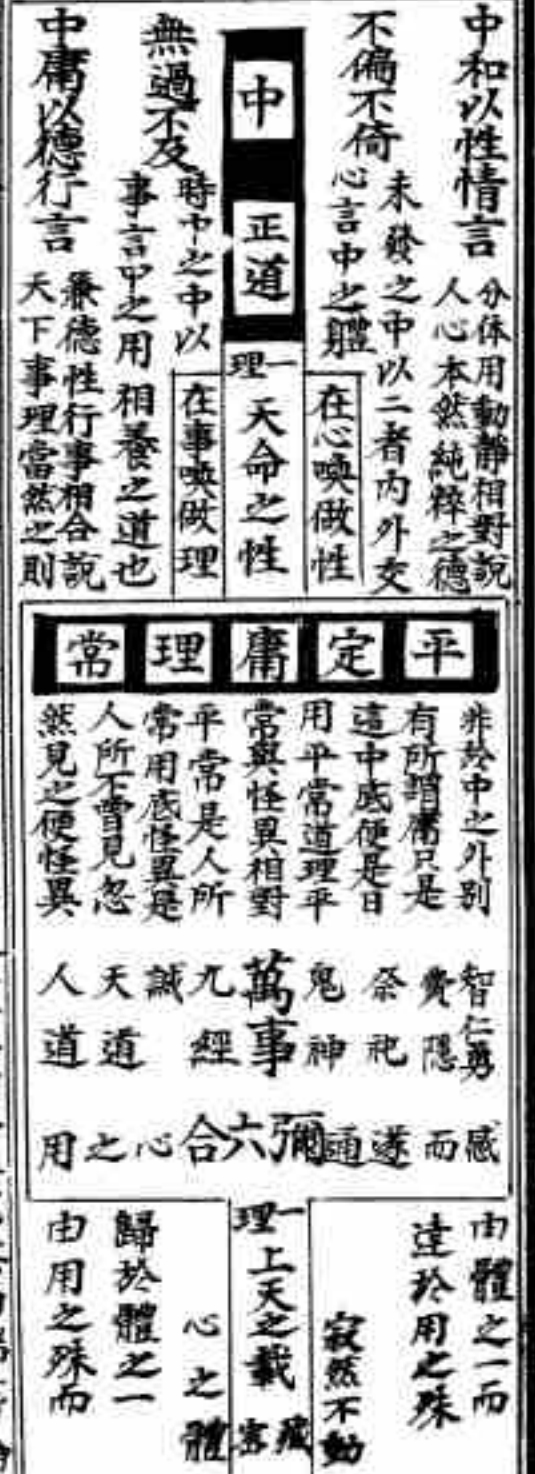 中和以性情言
分体用動靜相對說
人心本然純粹之德
不偏不倚
未發之中以
心言中之體
二者內外交
相養之道也
中
正道
一理
天命之性
在心喚做性
在事喚做理
無過不及
時中之中以
事言中之用
中庸以德行言
兼德性行事相合說
天下事理當然之則
平定庸理常
非於中之外別
有所謂庸只是
這中底便是日
用平常道理平
常與怪異相對
平常是人所
常用底怪異是
人所不曾見忽
然見之便怪異
智仁勇
費隱
祭祀
鬼神
萬事
九經
誠
天道
人道
感而遂通
彌六合
心之用
由體之一而
達於用之殊
寂然不動
一理
上天之載
藏密
心之體
歸於體之一
由用之殊而